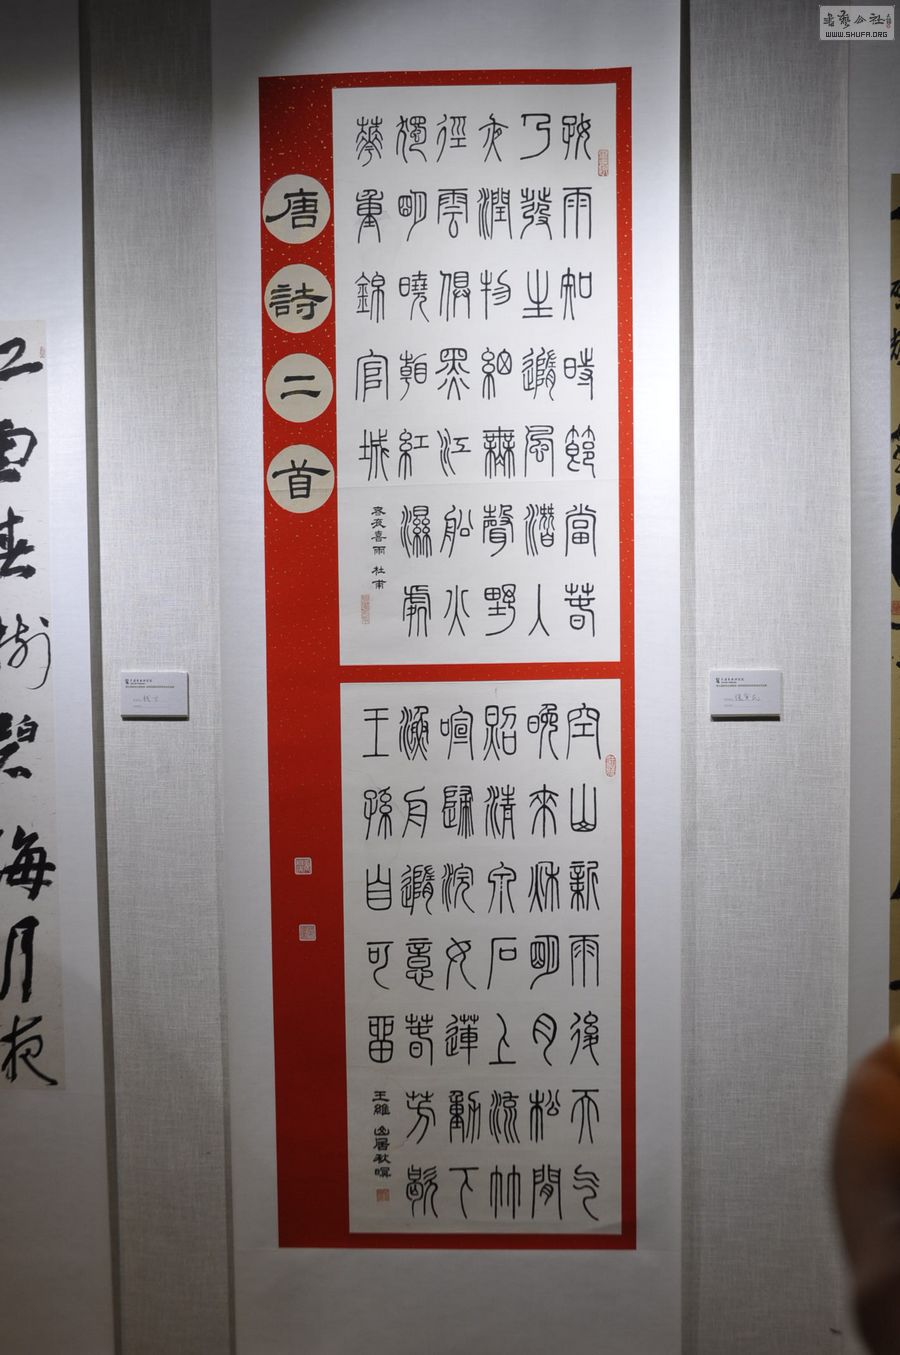 好雨知時節當春
乃發生隨風潛入
夜潤物細無聲野
徑雲俱黑江船火
獨明曉看紅濕處
華重錦官城
春夜喜雨 杜甫
空山新雨後天气
晚來秋明月松間
照清泉石上流竹
喧歸浣女蓮動下
漁舟隨意春芳歇
王孫自可留
王維 山居秋暝
唐詩二首
書藝公社
WWW.SHUFA.ORG